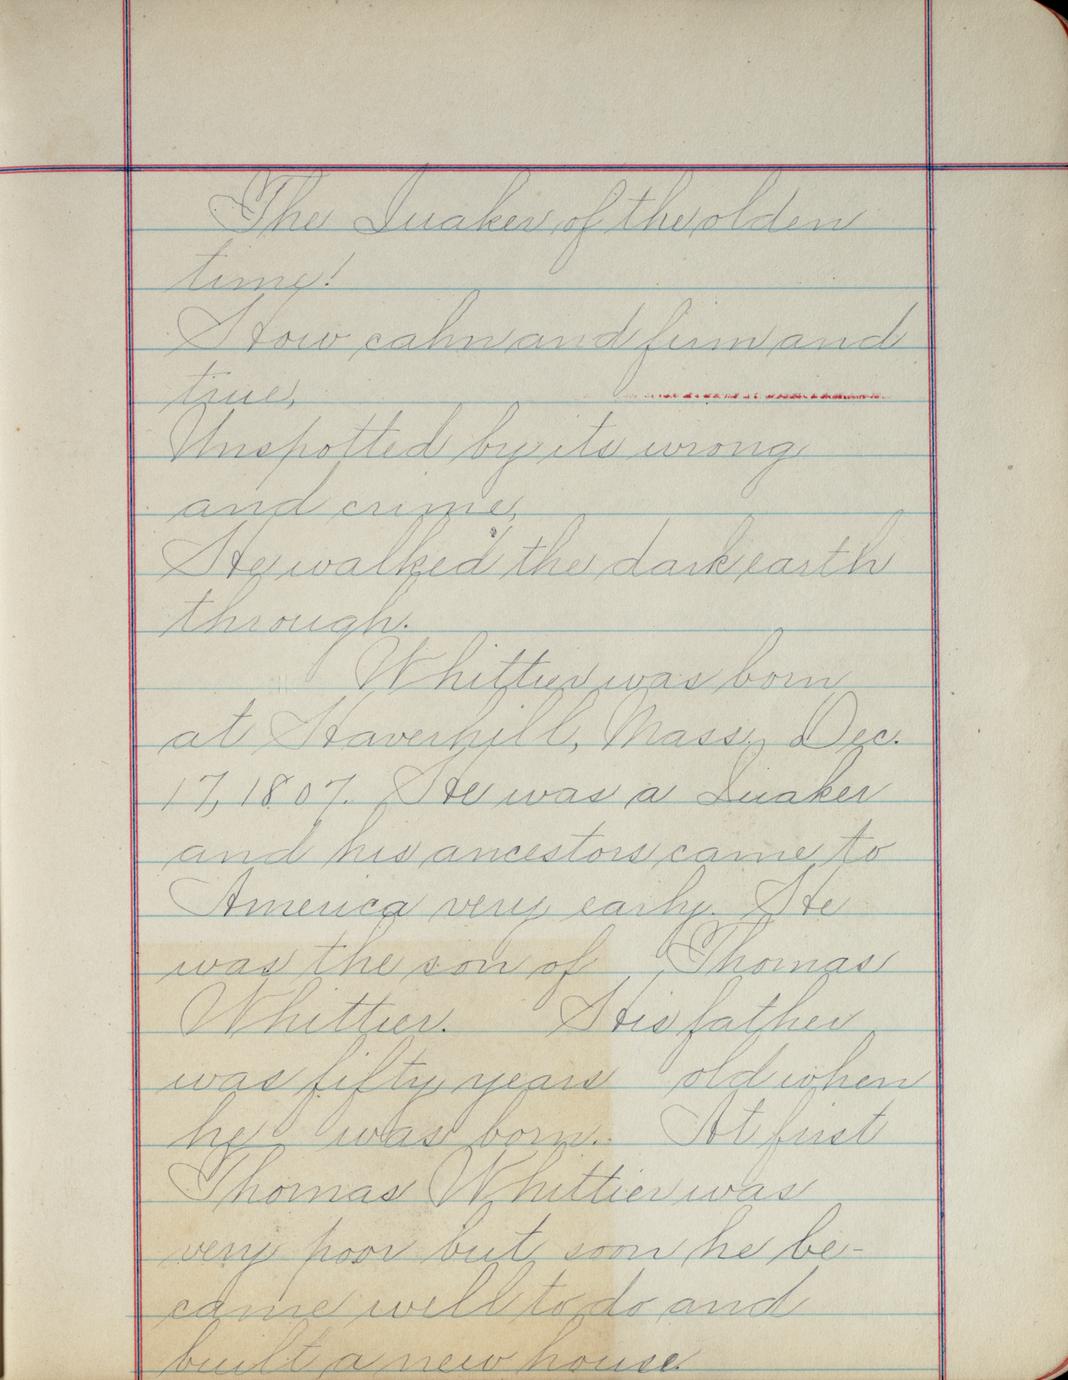 The Quaker of the olden
time!
How calm and firm and
true,
Unspotted by its wrong
and crime,
He walked the dark earth
through.
Whittier was born
at Haverhill, Mass, Dec.
17, 1807. He was a Quaker
and his ancestors came to
America very early. He
was the son of Thomas
Whittier. His father
was fifty years old when
he was born. At first
Thomas Whittier was
very poor but soon he be-
came well to do and
built a new house.